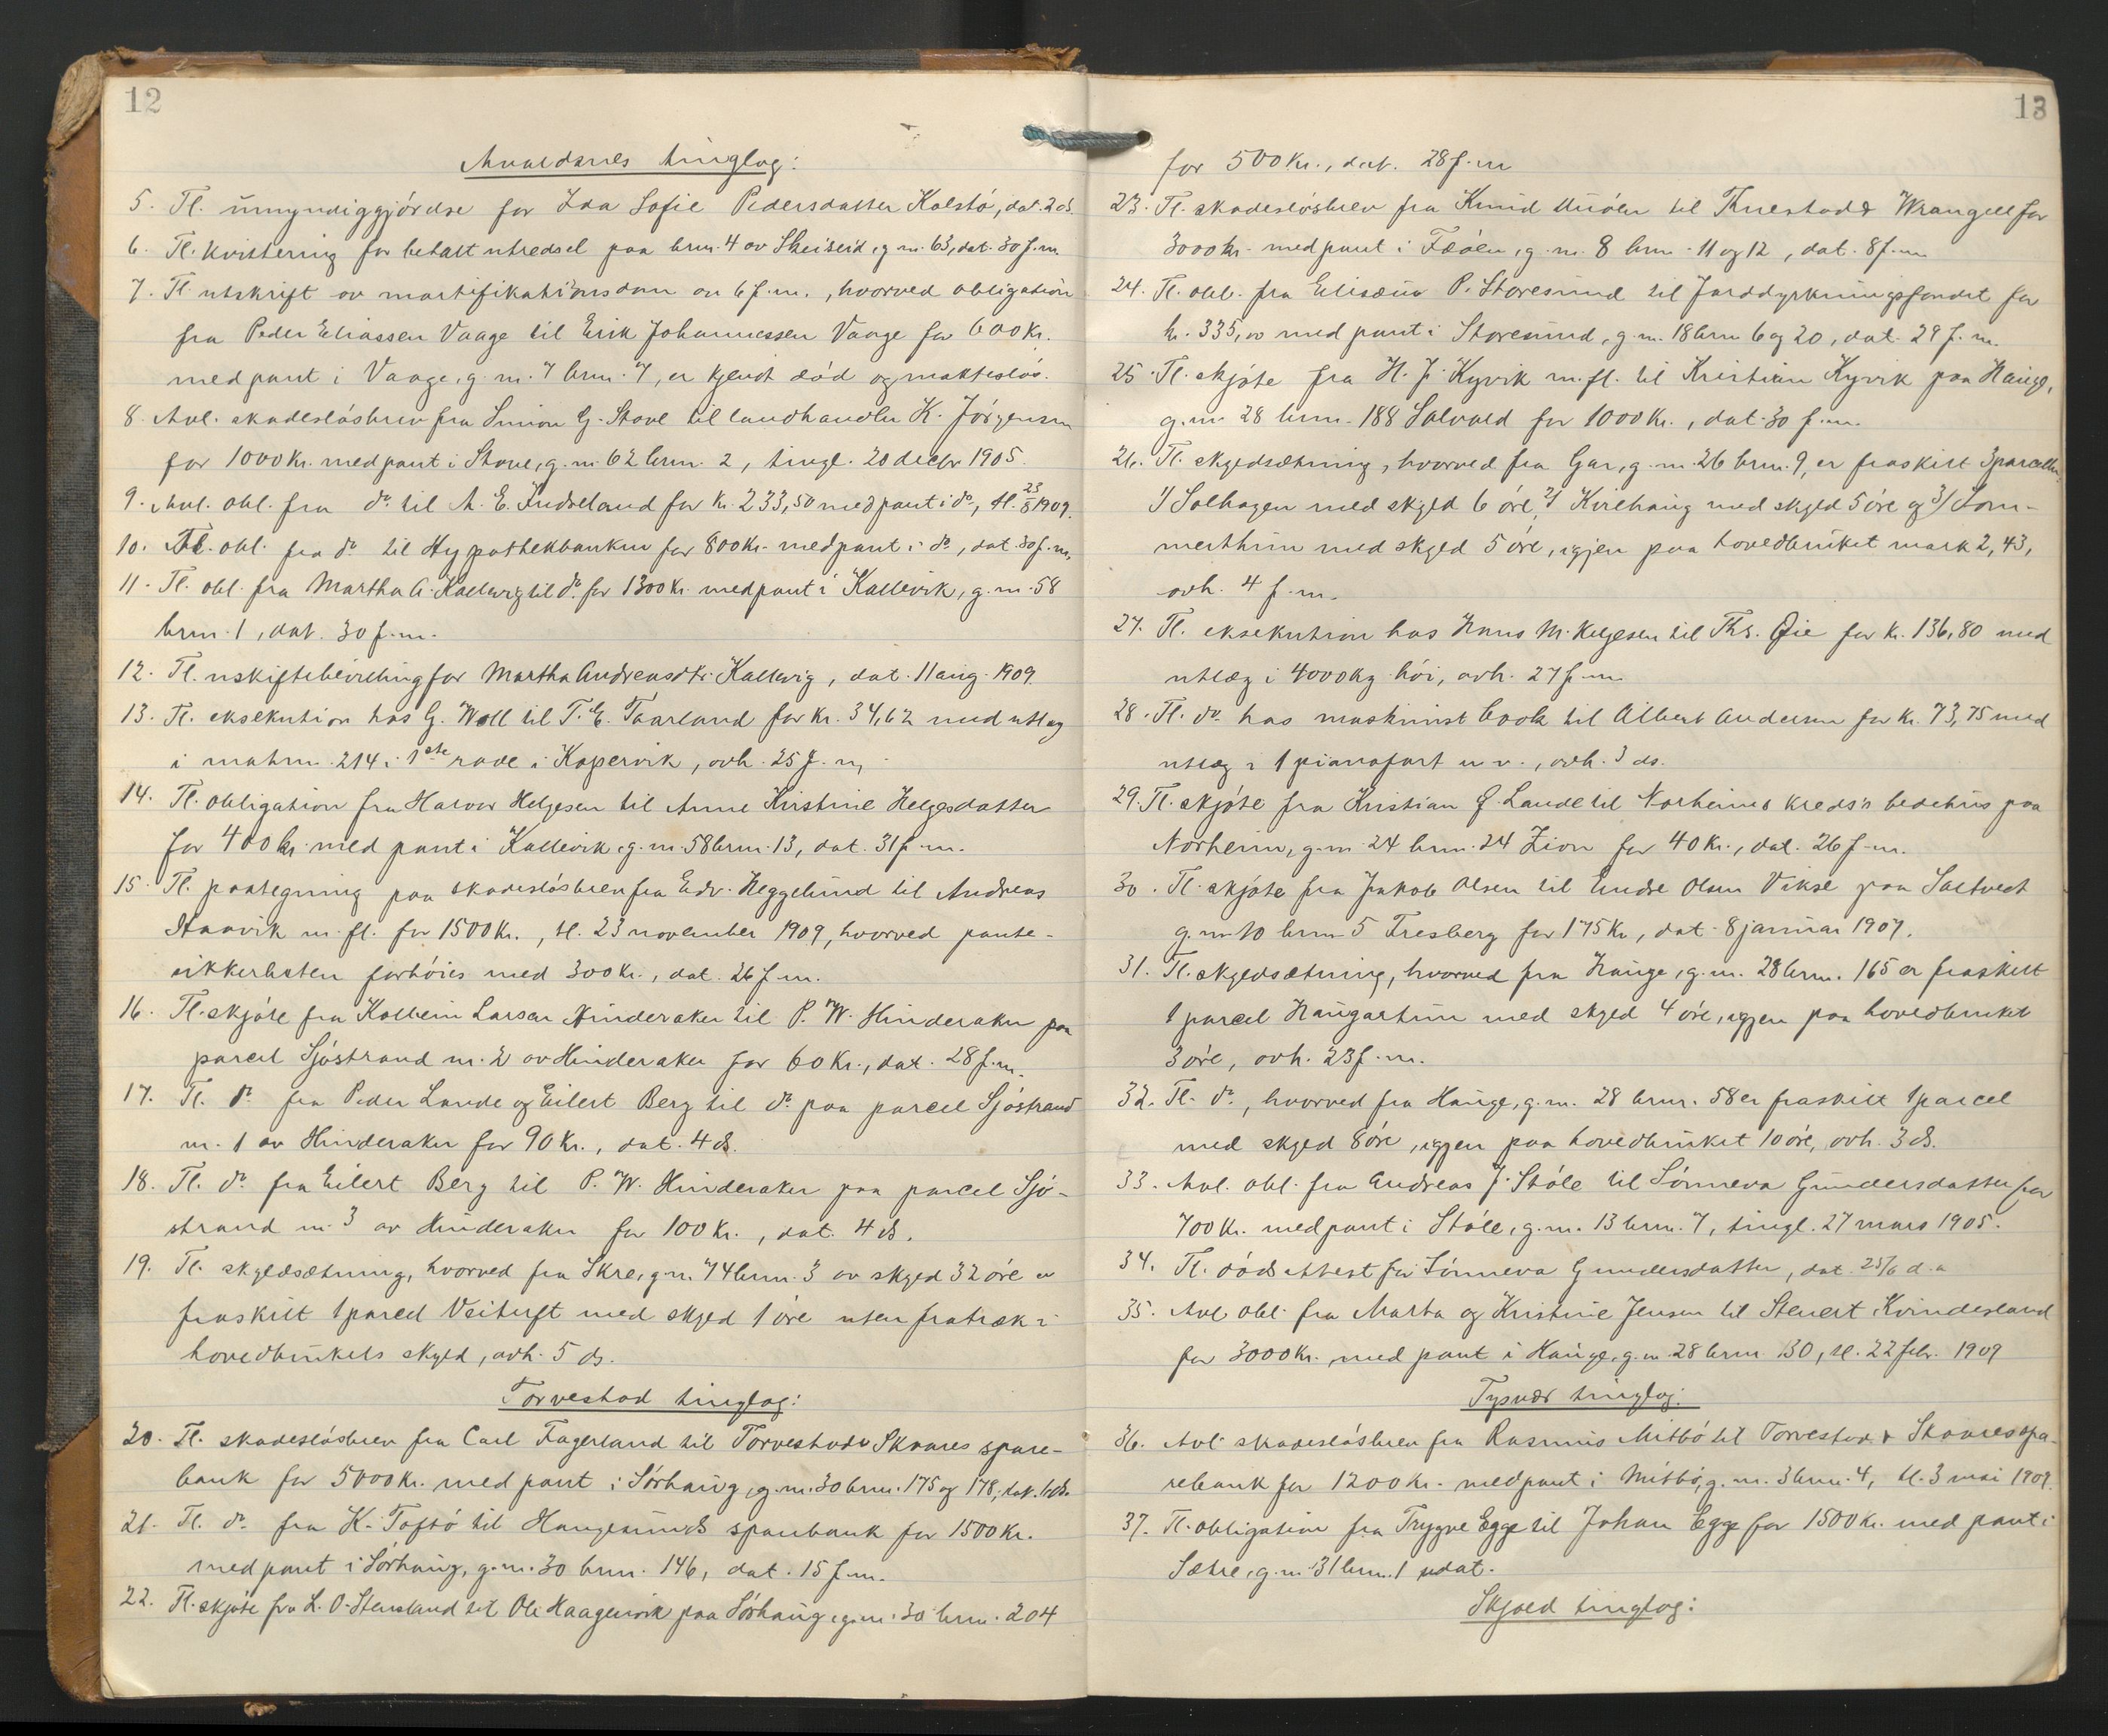 12
Avaldsnes tinglag:
5. Tl. umyndiggjórelse for Ida Sofie Pedersdatter Kalstó, dat. 2 ds.
6. Tl. kvittering for betalt utredsel paa brnr. 4 av Skeiseid, g.nr. 63, dat. 30 f.m.
7. Tl. utskrift av mortifikationsdom av 6 f.m., hvorved obligation
fra Peder Eliassen Vaage til Erik Johannessen Vaage for 600 Kr.
med pant i Vaage, g.nr. 7 brnr. 7, er kjendt död og magteslös.
8. Avl. skadeslósbrev fra Simon G. Stave til landhandler K. Jórgensen
for 1000 Kr. med pant i Stave, g.nr. 62 brnr. 2, tingl. 20 decbr 1905.
9. Avl. obl. fra do. til A. E. Indreland for Kr. 233,50 med pant i do., tl. 23/8 1909.
10. Tl. obl. fra do. til Hypothekbanken for 800 Kr. med pant i do., dat. 30 f.m.
11. Tl. obl. fra Martha A. Kallevig til do. for 1300 Kr. med pant i Kallevik, g.nr. 58
brnr. 1, dat. 30 f.m.
12. Tl. uskiftebevilling for Martha Andreasdtr. Kallevig, dat. 11 aug. 1909.
13. Tl. eksekution hos G. Woll til T. E. Taarland for Kr. 34,62 med utlæg
i matrnr. 214 i 1ste rode i Kopervik, avh. 25 f.m.
14. Tl. obligation fra Halvor Helgesen til Anne Kirstine Helgesdatter
for 400 Kr. med pant i Kallevik, g.nr. 58 brnr. 13, dat. 31 f.m.
15. Tl. paategning paa skadeslósbrev fra Edv. Heggelund til Andreas
Staavik m. fl. for 1500 Kr., tl. 23 november 1909, hvorved pante-
sikkerheten forhóies med 300 Kr., dat. 26 f.m.
16. Tl. skjóte fra Kolbein Larsen Hinderaker til P. W. Hinderaker paa
parcel Sjóstrand nr. 2 av Hinderaker for 60 Kr., dat. 28 f.m.
17. Tl. do. fra Peder Lande og Eilert Berg til do. paa parcel Sjóstrand
nr. 1 av Hinderaker for 90 Kr., dat. 4 ds.
18. Tl. do. fra Eilert Berg til P. W. Hinderaker paa parcel Sjó-
strand nr. 3 av Hinderaker for 100 Kr., dat. 4 ds.
19. Tl. skyldsætning, hvorved fra Skre, g.nr. 74 brnr. 3 av skyld 32 óre er
fraskilt 1 parcel Veituft med skyld 1 óre uten fratræk i
hovedbrukets skyld, avh. 5 ds.
Torvestad tinglag:
20. Tl. skadeslósbrev fra Carl Fagerland til Torvestad & Skaares spare-
bank for 5000 Kr. med pant i Sórhaug, g.nr. 30 brnr. 175 og 178, dat. 1 ds.
21. Tl. do. fra K. Toftó til Haugesunds sparebank for 1500 Kr.
med pant i Sórhaug, g.nr. 30 brnr. 146, dat. 15 f.m.
22. Tl. skjóte fra L. O. Stensland til Ole Haagenvik paa Sórhaug, g.nr. 30 brnr. 204
13
for 500 Kr., dat. 28 f.m
23. Tl. skadeslósbrev fra Knud Unólen til Knestad & Wrangell for
3000 Kr. med pant i Fæóen, g.nr. 8 brnr. 11 og 12, dat. 8 f.m.
24. Tl. obl. fra Elisæus P. Storesund til Jorddyrkningsfondet for
kr. 335,00 med pant i Storesund, g.nr. 18 brnr 6 og 20, dat. 29 f.m.
25. Tl. skjóte fra H. J. Kyvik m. fl. til Kristian Kyvik paa Hauge,
g.nr. 28 brnr. 188 Solvold for 1000 Kr., dat. 30 f.m.
26. Tl. skyldsætning, hvorved fra Gar, g.nr. 26 brnr. 9, er fraskilt 3 parceller,
1/ Solhagen med skyld 6 óre, 2/ Kvilhaug med skyld 5 óre og 3/ Som-
merthun med skyld 5 óre, igjen paa hovedbruket mark 2,43,
avh. 4 f.m.
27. Tl. eksekution hos Hans M. Helgesen til Ths. Øie for Kr. 136,80 med
utlæg i 4000 kg. hói, avh. 27 f.m.
28. Tl. do. hos maskinist Cook til Albert Andersen for Kr. 73,75 med
utlæg i 1 pianofort u. v., avh. 3 ds.
29. Tl. skjóte fra Kristian G. Lande til Norheims kreds's bedehus paa
Norheim, g.nr. 24 brnr. 24 Zion for 40 Kr., dat. 26 f.m.
30. Tl. skjóte fra Jakob Olsen til Endre Olsen Vikse paa Saltveit
g.nr. 10 brnr. 5 Fresberg for 175 Kr, dat. 8 januar 1907.
31. Tl. skyldsætning, hvorved fra Hauge, g.nr. 28 brnr. 165 er fraskilt
1 parcel Haugartun med skyld 4 óre, igjen paa hovedbruket
3 óre, avh. 23 f.m.
32. Tl. do., hvorved fra Hauge, g.nr. 28 brnr. 58 er fraskilt 1 parcel
med skyld 8 óre, igjen paa hovedbruket 10 óre, avh. 3 ds.
33. Avl. obl. fra Andreas J. Stóle til Sónneva Gundersdatter for
700 Kr. med pant i Stóle, g.nr. 13 brnr. 7, tingl. 27 mars 1905.
34. Tl. dódsattest for Sónneva Gundersdatter, dat. 25/6 d.a
35. Avl obl. fra Marta og Kristine Jensen til Stenert Kvindesland
for 3000 Kr. med pant i Hauge, g.nr. 28 brnr. 130, tl. 22 febr. 1909
Tysvær tinglag:
36. Avl. skadeslósbrev fra Rasmus Mitbó til Torvestad & Skaares spa-
rebank for 1200 Kr. med pant i Mitbó, g.nr. 3 brnr. 4, tl. 3 mai 1909.
37. Tl. obligation fra Trygve Egge til Johan Egge for 1500 Kr. med pant i
Sætre, g.nr. 31 brnr. 1 udat.
Skjold tinglag: